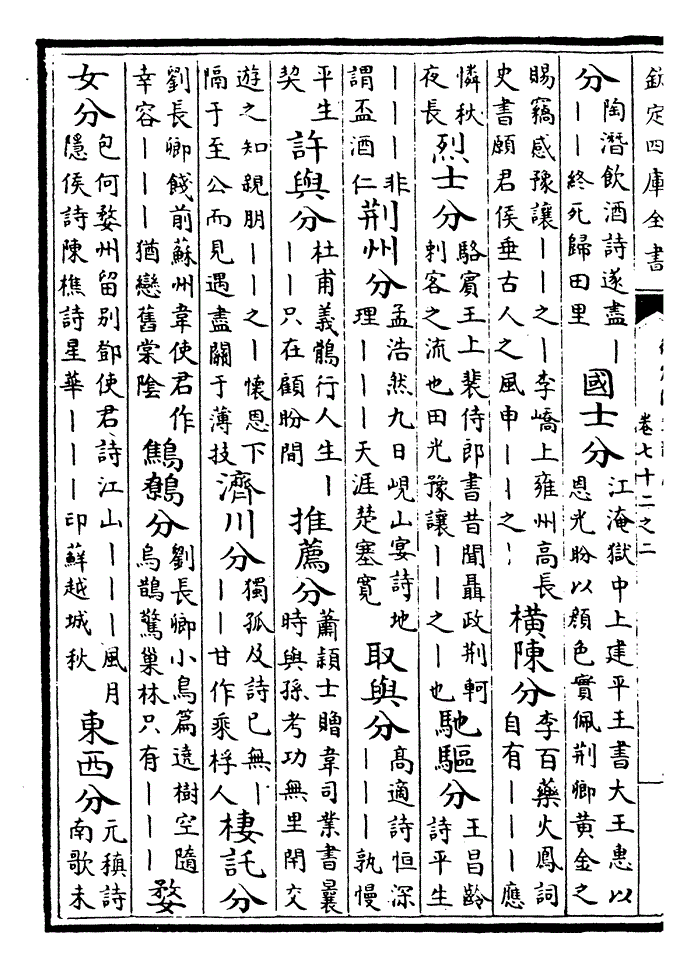 欽定四庫全書
卷七十二之二
分
陶潛飲酒詩遂盡｜
｜｜終死歸田里
國士分
江淹獄中上建平王書大王惠以
恩光盼以顔色實佩荆卿黄金之
賜竊感豫讓｜｜之｜李嶠上雍州高長
史書願君侯垂古人之風申｜｜之｜
橫陳分
李百藥火鳳詞
自有｜｜｜應
憐秋
夜長
烈士分
駱賓王上裴侍郎書昔聞聶政荆軻
刺客之流也田光豫讓｜｜之｜也
馳驅分
王昌齡
詩平生
｜｜｜非
謂盃酒仁
荆州分
孟浩然九日峴山宴詩地
理｜｜｜天涯楚塞寛
取與分
高適詩恒深
｜｜｜孰慢
平生
契
許與分
杜甫義鶻行人生｜
｜｜只在顧盼間
推薦分
蕭潁士贈韋司業書曩
時與孫考功無里閈交
遊之知親朋｜｜之｜懷恩下
隔于至公而見遇盡關于薄技
濟川分
獨孤及詩已無｜
｜｜甘作乘桴人
棲託分
劉長卿餞前蘇州韋使君作
幸容｜｜｜猶戀舊棠陰
鷦鷯分
劉長卿小鳥篇遶樹空隨
烏鵲驚巢林只有｜｜｜
婺
女分
包何婺州留别鄧使君詩江山｜｜｜風月
隱侯詩陳樵詩星華｜｜｜印蘚越城秋
東西分
元稹詩
南歌未